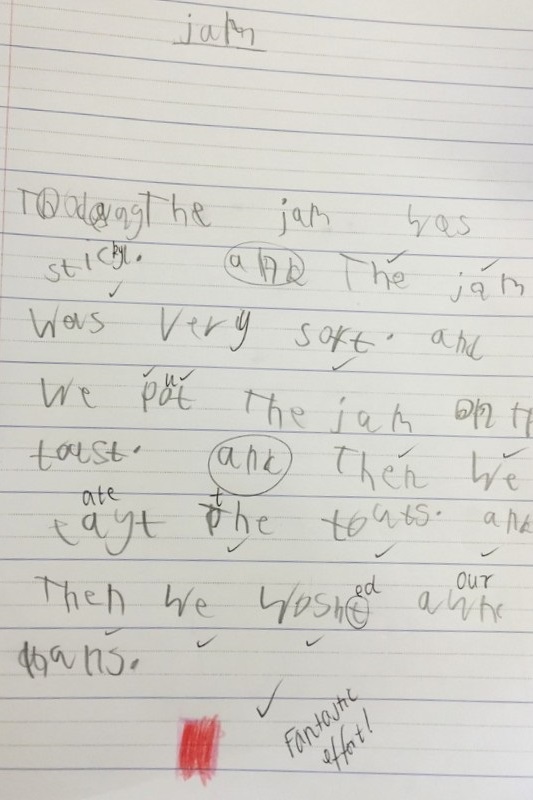 jam
Today The jam was
sticky. and The jam
Was very soft. and
ate
We put The jam on th
toast. and Then We
ate t
eayt the touts. and
ed our
Then We Washt awhe
hans.
Fantastic
effort!